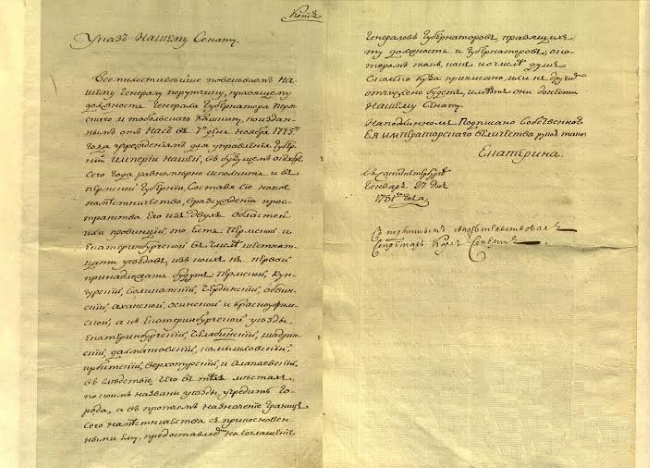 Копія
Указъ Нашему Сенату.
Всемилостивѣйше повелѣваемъ На-
шему Генералу порутчику, правящему
должность Генерала Губернатора Перм-
скаго и тобольскаго Кашкину, по издан-
нымъ отъ Насъ въ 7 день Ноября 1775го
года учрежденіямъ для управленія Губер-
ній Имперіи Нашей, въ будущемъ октябрѣ
сего года равномѣрно исполнить и въ
Пермской Губерніи, составя сіе новое
намѣстничество, въ разсужденіи прос-
транства его изъ двухъ областей
или провинцій, то есть Пермской и
Екатеринбургской въ числѣ шестнат-
цати уѣздовъ, изъ коихъ къ первой
принадлежать будутъ Пермской, кун-
гурскій, Соликамскій, Чердынскій, обвин-
скій, оханской, осинской и красноуфим-
ской; а къ Екатеринбургской уѣзды,
Екатеринбургскій, Челябинскій, шадрин-
скій, далматовскій, камышловскій,
ирбитскій, верхотурскій, и алапаевскій,
въ слѣдствіе сего въ тѣхъ мѣстахъ,
по коимъ названы уѣзды, учредить го-
рода, а въ протчемъ назначеніе границъ
сего намѣстничества съ прикосновен-
ными ему, предоставляя на соглашеніе
Генераловъ Губернаторовъ, правящихъ
ту должность и Губернаторовъ, о ко-
торомъ такъ, какъ и о числѣ душъ
сколько куда приписано, или въ другія
отчислено будетъ, имѣютъ они донести
Нашему Сенату.
На подлинномъ Подписано Собственною
Ея императорскаго величества рукою тако.
Екатерина.
въ санктпетербургѣ
Генваря 27 дня
1781го года
Съ подлиннымъ свидѣтельствовалъ
Секретарь